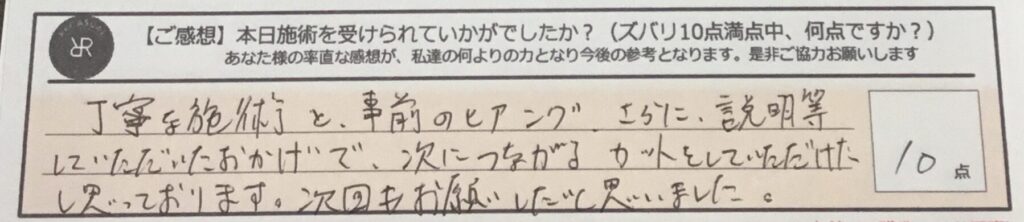 【ご感想】本日施術を受けられていかがでしたか？（ズバリ10点満点中、何点ですか？）
あなた様の率直な感想が、私達の何よりの力となり今後の参考となります。是非ご協力お願いします
丁寧な施術と、事前のヒアリング、さらに、説明等
していただいたおかげで、次につながるカットをしていただけた
と思っております。次回もお願いしたいと思いました。
10点